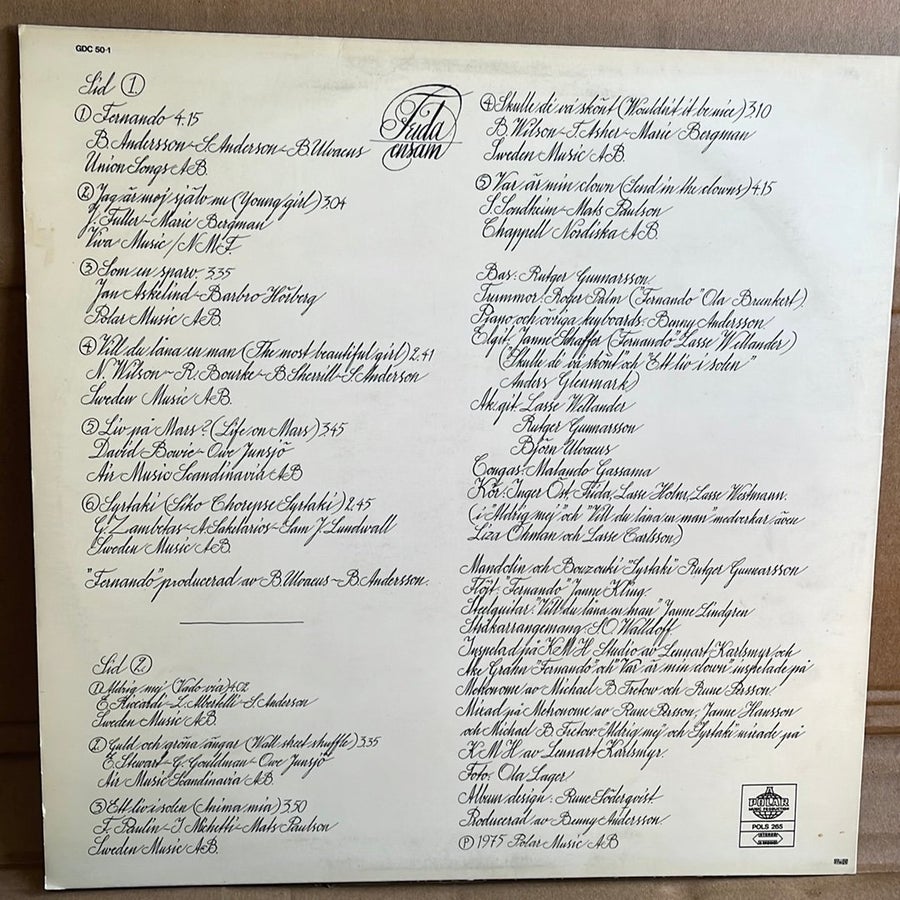 GDC 50-1
Sid 1.
1 Fernando 4.15
B. Andersson-S. Anderson-B. Ulvaeus
Union Songs AB.
2 Jag är mej själv nu (Young girl) 3.04
J. Fuller-Marie Bergman
Viva Music/N.M.F.
3 Som en sparv 3.35
Jan Askelind-Barbro Hörberg
Polar Music AB.
4 Vill du låna en man (The most beautiful girl) 2.41
N. Wilson-R. Bourke-B. Sherrill-S. Anderson
Sweden Music AB.
5 Liv på Mars? (Life on Mars) 3.45
David Bowie-Owe Junsjö
Air Music Scandinavia AB
6 Syrtaki (Siko Chorepse Syrtaki) 2.45
G. Zambetas-A. Sakelarios-Sam J. Lundwall
Sweden Music AB.
"Fernando" producerad av B. Ulvaeus-B. Andersson.
Sid 2.
1 Aldrig mej (Vado via) 4.02
E. Riccardi-L. Albertelli-S. Anderson
Sweden Music AB
2 Guld och gröna ängar (Wall street shuffle) 3.35
E. Stewart-G. Gouldman-Owe Junsjö
Air Music Scandinavia AB.
3 Ett liv i solen (Anima mia) 3.50
F. Paulin-I. Michetti-Mats Paulson
Sweden Music AB.
Frida
ensam
4 Skulle de' va' skönt (Wouldn't it be nice) 3.10
B. Wilson-T. Asher-Marie Bergman
Sweden Music AB.
5 Var är min clown (Send in the clowns) 4.15
S. Sondheim-Mats Paulson
Chappell Nordiska AB.
Bas: Rutger Gunnarsson.
Trummor: Roger Palm ("Fernando" Ola Brunkert).
Piano och övriga keyboards: Benny Andersson
Elgit: Janne Schaffer ("Fernando" Lasse Wellander)
("Skulle de' va' skönt" och "Ett liv i solen"
Anders Glenmark)
Ak.git: Lasse Wellander
Rutger Gunnarsson
Björn Ulvaeus
Congas: Malando Gassama
Kör: Inger Öst, Frida, Lasse Holm, Lasse Westmann.
(i "Aldrig mej" och "Vill du låna en man" medverkar även
Liza Öhman och Lasse Carlsson)
Mandolin och Bouzouki "Syrtaki" Rutger Gunnarsson
Flöjt "Fernando" Janne Kling.
Steelguitar "Vill du låna en man" Janne Lindgren
Stråkarrangemang: S.O. Walldoff.
Inspelad på KMH Studio av Lennart Karlsmyr och
Åke Grahn "Fernando" och "Var är min clown" inspelade på
Metronome av Michael B. Tretow och Rune Persson
Mixad på Metronome av Rune Persson, Janne Hansson
och Michael B. Tretow "Aldrig mej och Syrtaki" mixade på
KMH av Lennart Karlsmyr.
Foto: Ola Lager
Album design: Rune Söderqvist
Producerad av Benny Andersson.
℗ 1975 Polar Music AB
A
POLAR
MUSIC PRODUCTION
POLS 265
STEREO